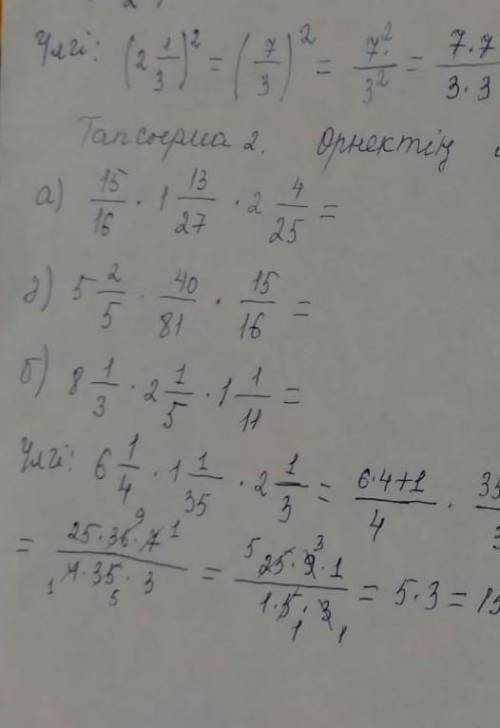 Үлгі: (2 1/3)² = (7/3)² = 7²/3² = 7·7/3·3
Тапсырма 2. Өрнектің
а) 15/16 · 1 13/27 · 2 4/25 =
ә) 5 2/5 · 40/81 · 15/16 =
б) 8 1/3 · 2 1/5 · 1 1/11 =
Үлгі: 6 1/4 · 1 1/35 · 2 1/3 = 6·4+1/4 ·
= 25·36·7/4·35·3 = 25·9·1/1·5·3 = 5·3 = 15